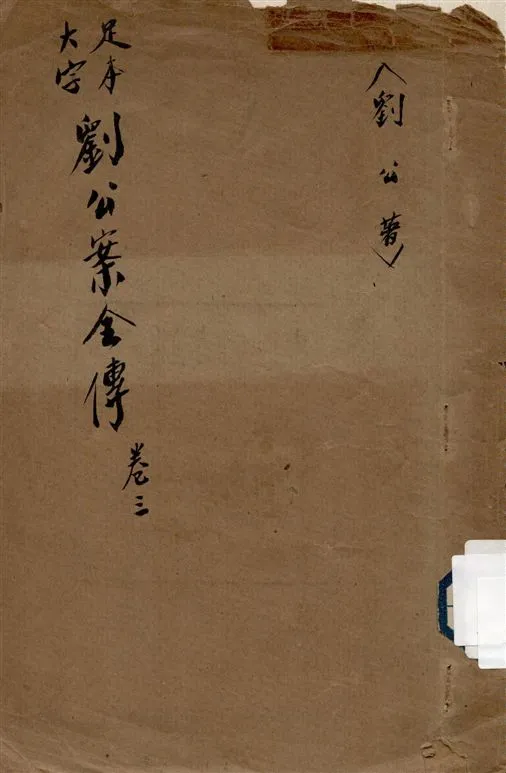 〈劉公著〉
足本
大字
劉公案全傳
卷三